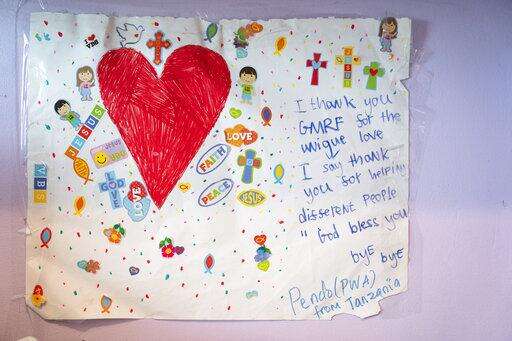 I thank you
GMRF for the
unique love
I say thank
you for helping
different people
" God bless you
bye bye
Pendo (PWA)
from Tanzania
JESUS
VBS
GOD
LOVE
LOVE
FAITH
PEACE
LOVE
JESUS
JESUS